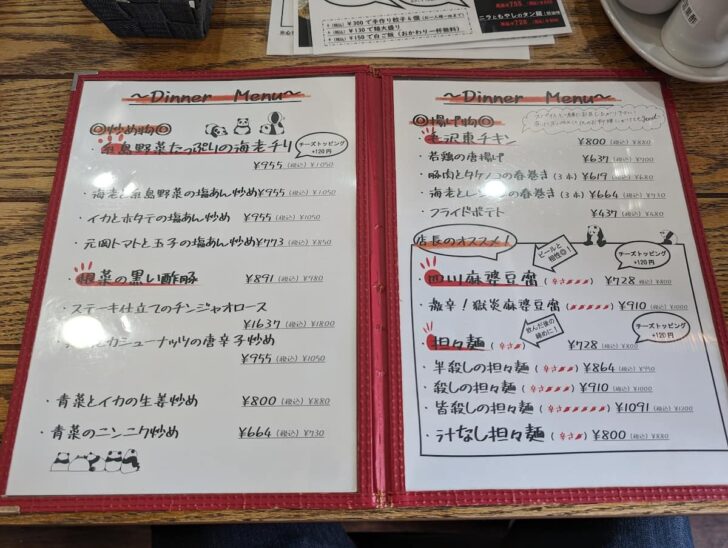 ¥300で手作り餃子4個
¥130で麺大盛り
¥150で白ご飯(おかわり一杯無料)
ニラともやしのタン麺
～Dinner Menu～
◎炒め物◎
・糸島野菜たっぷりの海老チリ
チーズトッピング
+120円
¥955(税込)¥1050
・海老と糸島野菜の塩あん炒め¥955(税込)¥1050
・イカとホタテの塩あん炒め ¥955(税込)¥1050
・元岡トマトと玉子の塩あん炒め¥773(税込)¥850
・根菜の黒い酢豚 ¥891(税込)¥980
・ステーキ仕立てのチンジャオロース
¥1637(税込)¥1800
カシューナッツの唐辛子炒め
¥955(税込)¥1050
・青菜とイカの生姜炒め ¥800(税込)¥880
・青菜のニンニク炒め ¥664(税込)¥730
～Dinner Menu～
◎揚げ物◎
・毛沢東チキン ¥800(税込)¥880
・若鶏の唐揚げ ¥637(税込)¥700
・豚肉とタケノコの春巻き(3本) ¥619(税込)¥680
春巻き(3本) ¥664(税込)¥730
・フライドポテト ¥437(税込)¥480
店長のオススメ!
ビールと相性◎!
チーズトッピング
+120円
・四川麻婆豆腐(辛さ) ¥728(税込)¥800
・激辛!獄炎麻婆豆腐(辛さ) ¥910(税込)¥1000
飲んだ後の締めに!
チーズトッピング
+120円
・担々麺(辛さ) ¥728(税込)¥800
・半殺しの担々麺(辛さ) ¥864(税込)¥950
・殺しの担々麺(辛さ) ¥910(税込)¥1000
・皆殺しの担々麺(辛さ) ¥1091(税込)¥1200
・汁なし担々麺(辛さ) ¥800(税込)¥880